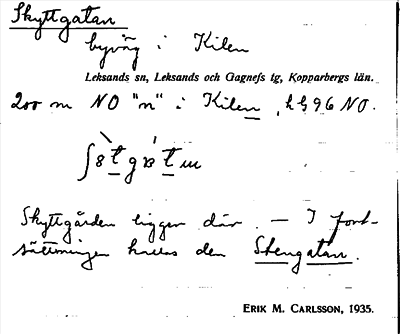 Skyttgatan
byväg i Kilen
Leksands sn, Leksands och Gagnefs tg, Kopparbergs län.
200 m NO "n" i Kilen, 96 NO.
Skyttgården ligger där. — I fort-
sättningen kallas den Stengatan.
ERIK M. CARLSSON, 1935.